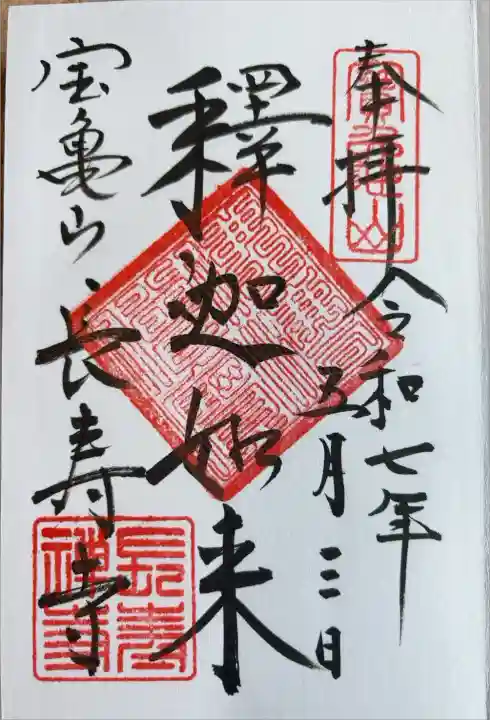 奉拝
令和七年
五月三日
釋迦如来
宝亀山長寿寺
寶龜山
長寿禅寺